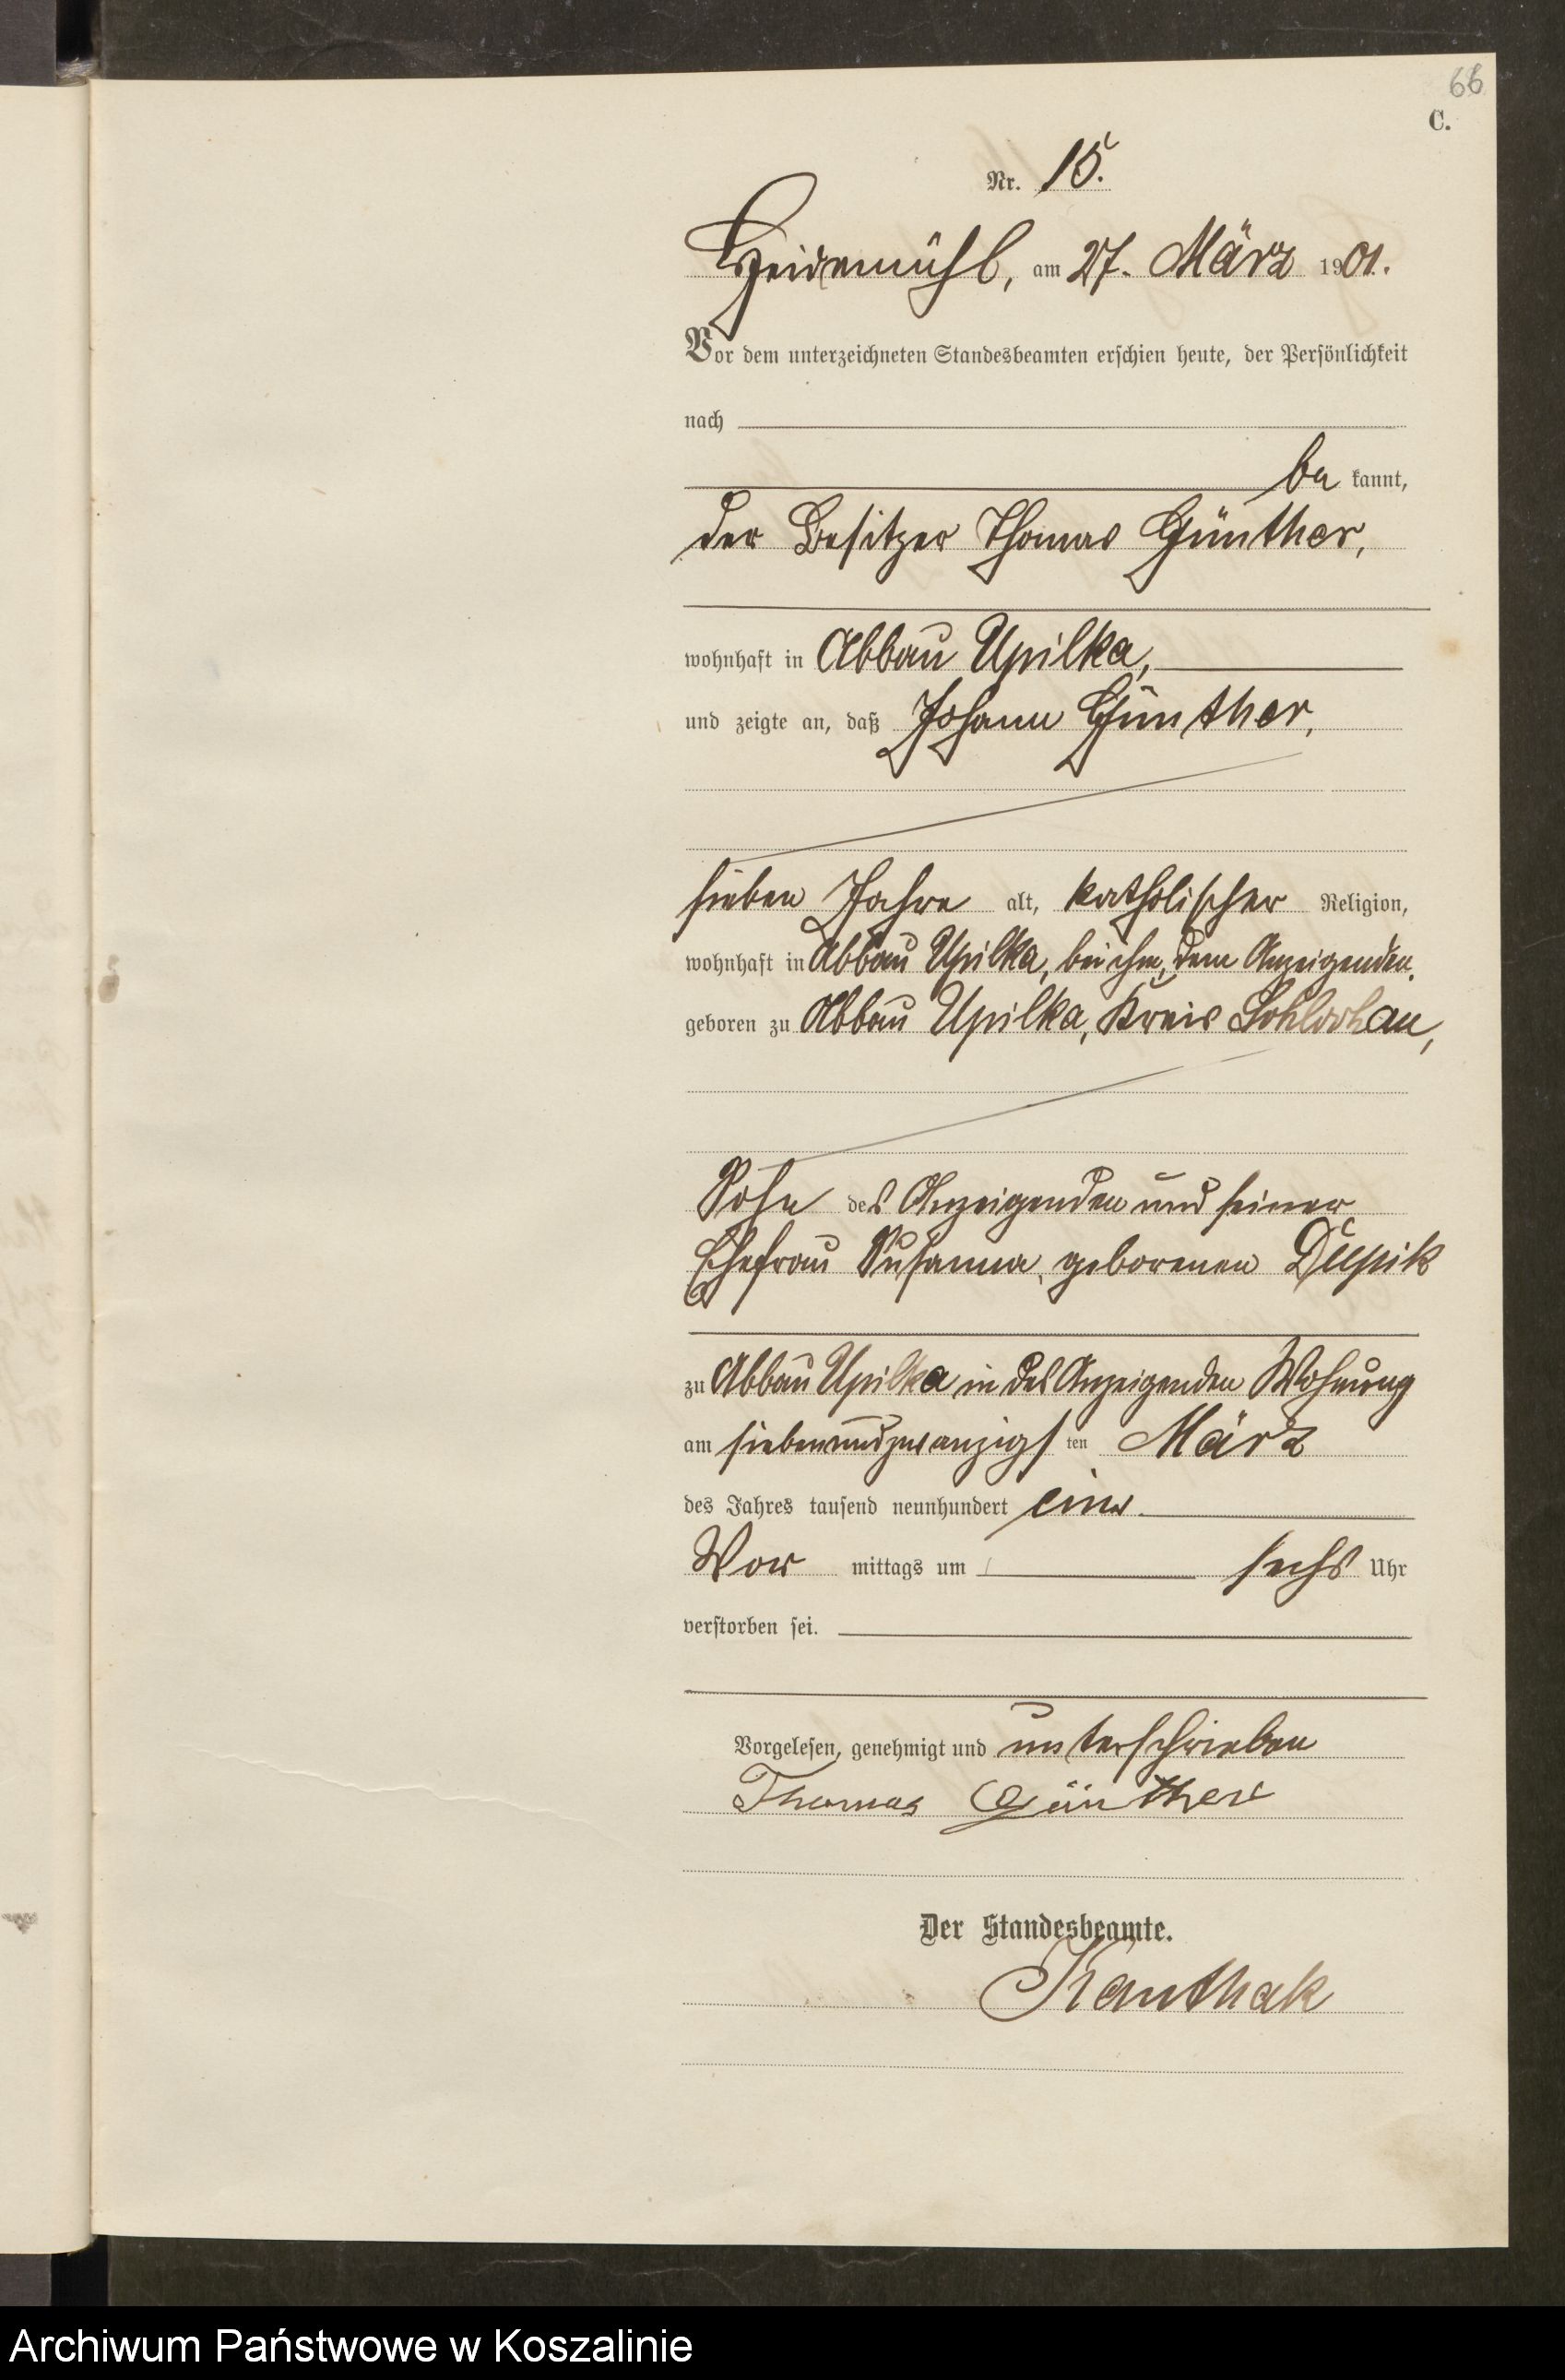 66
C.
Nr. 15.
Heidemühl, am 27. März 1901.
Vor dem unterzeichneten Standesbeamten erschien heute, der Persönlichkeit
nach
be kannt,
der Besitzer Thomas Günther,
wohnhaft in Abbau Upilka,
und zeigte an, daß Johann Günther,
sieben Jahre alt, katholischer Religion,
wohnhaft in Abbau Upilka, bei ihm, dem Anzeigenden,
geboren zu Abbau Upilka, Kreis Schlochau,
Sohn des Anzeigenden und seiner
Ehefrau Susanna, geborenen
zu Abbau Upilka in des Anzeigenden Wohnung
am siebenundzwanzigsten März
des Jahres tausend neunhundert eins
Vor mittags um sechs Uhr
verstorben sei.
Vorgelesen, genehmigt und unterschrieben
Thomas Günther
Der Standesbeamte.
Kanthak
Archiwum Państwowe w Koszalinie